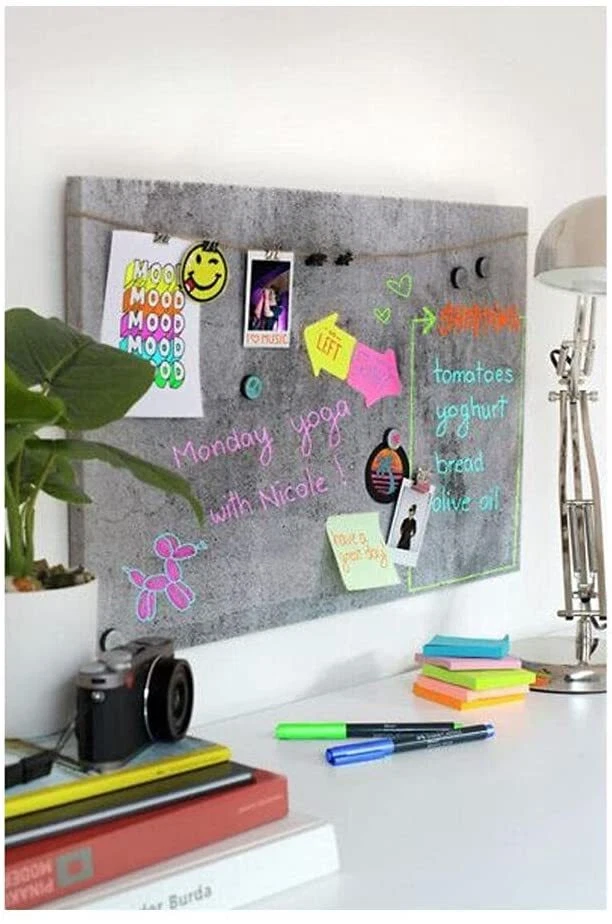 MOOD
MOOD
MOOD
MOOD
MOOD
I ♡ MUSIC
LEFT
SHOPPING
tomatoes
yoghurt
bread
olive oil
Monday yoga
with Nicole !
have a
great day
PINAK
MODER
der Burda